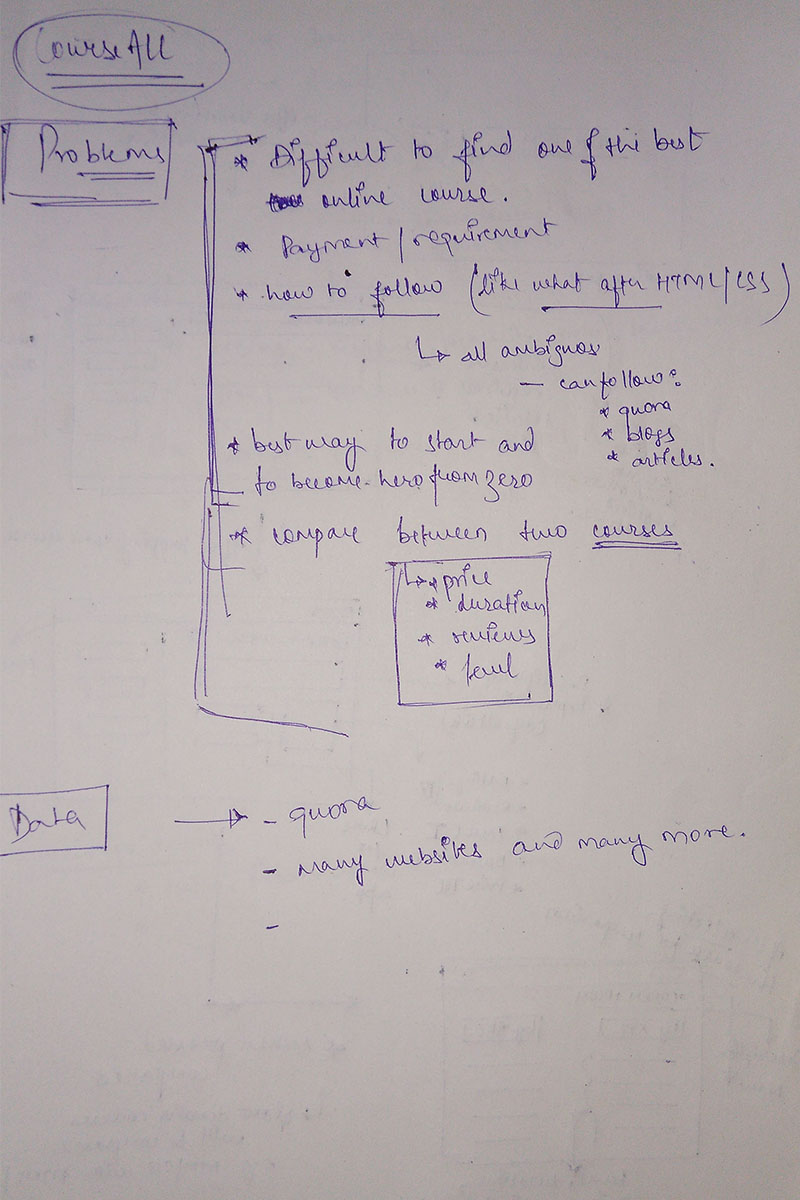 CourseAll
Problems
* Difficult to find one of the best
online course.
* Payment / requirement
* how to follow (like what after HTML/CSS)
↳ all ambignos
- can follow:
* quora
* blogs
* articles.
* best way to start and
to become hero from zero
* compare between two courses
↳ * price
* duration
* reviews
* level
Data → - quora
- many websites and many more.
-